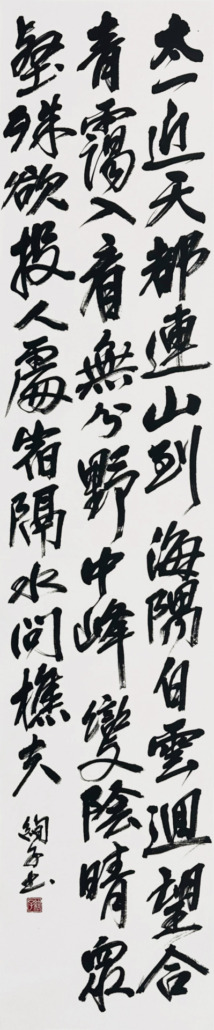 太一近天都連山到海隅白雲迴望合
青靄入看無分野中峰變陰晴眾
壑殊欲投人處宿隔水問樵夫
絢子書